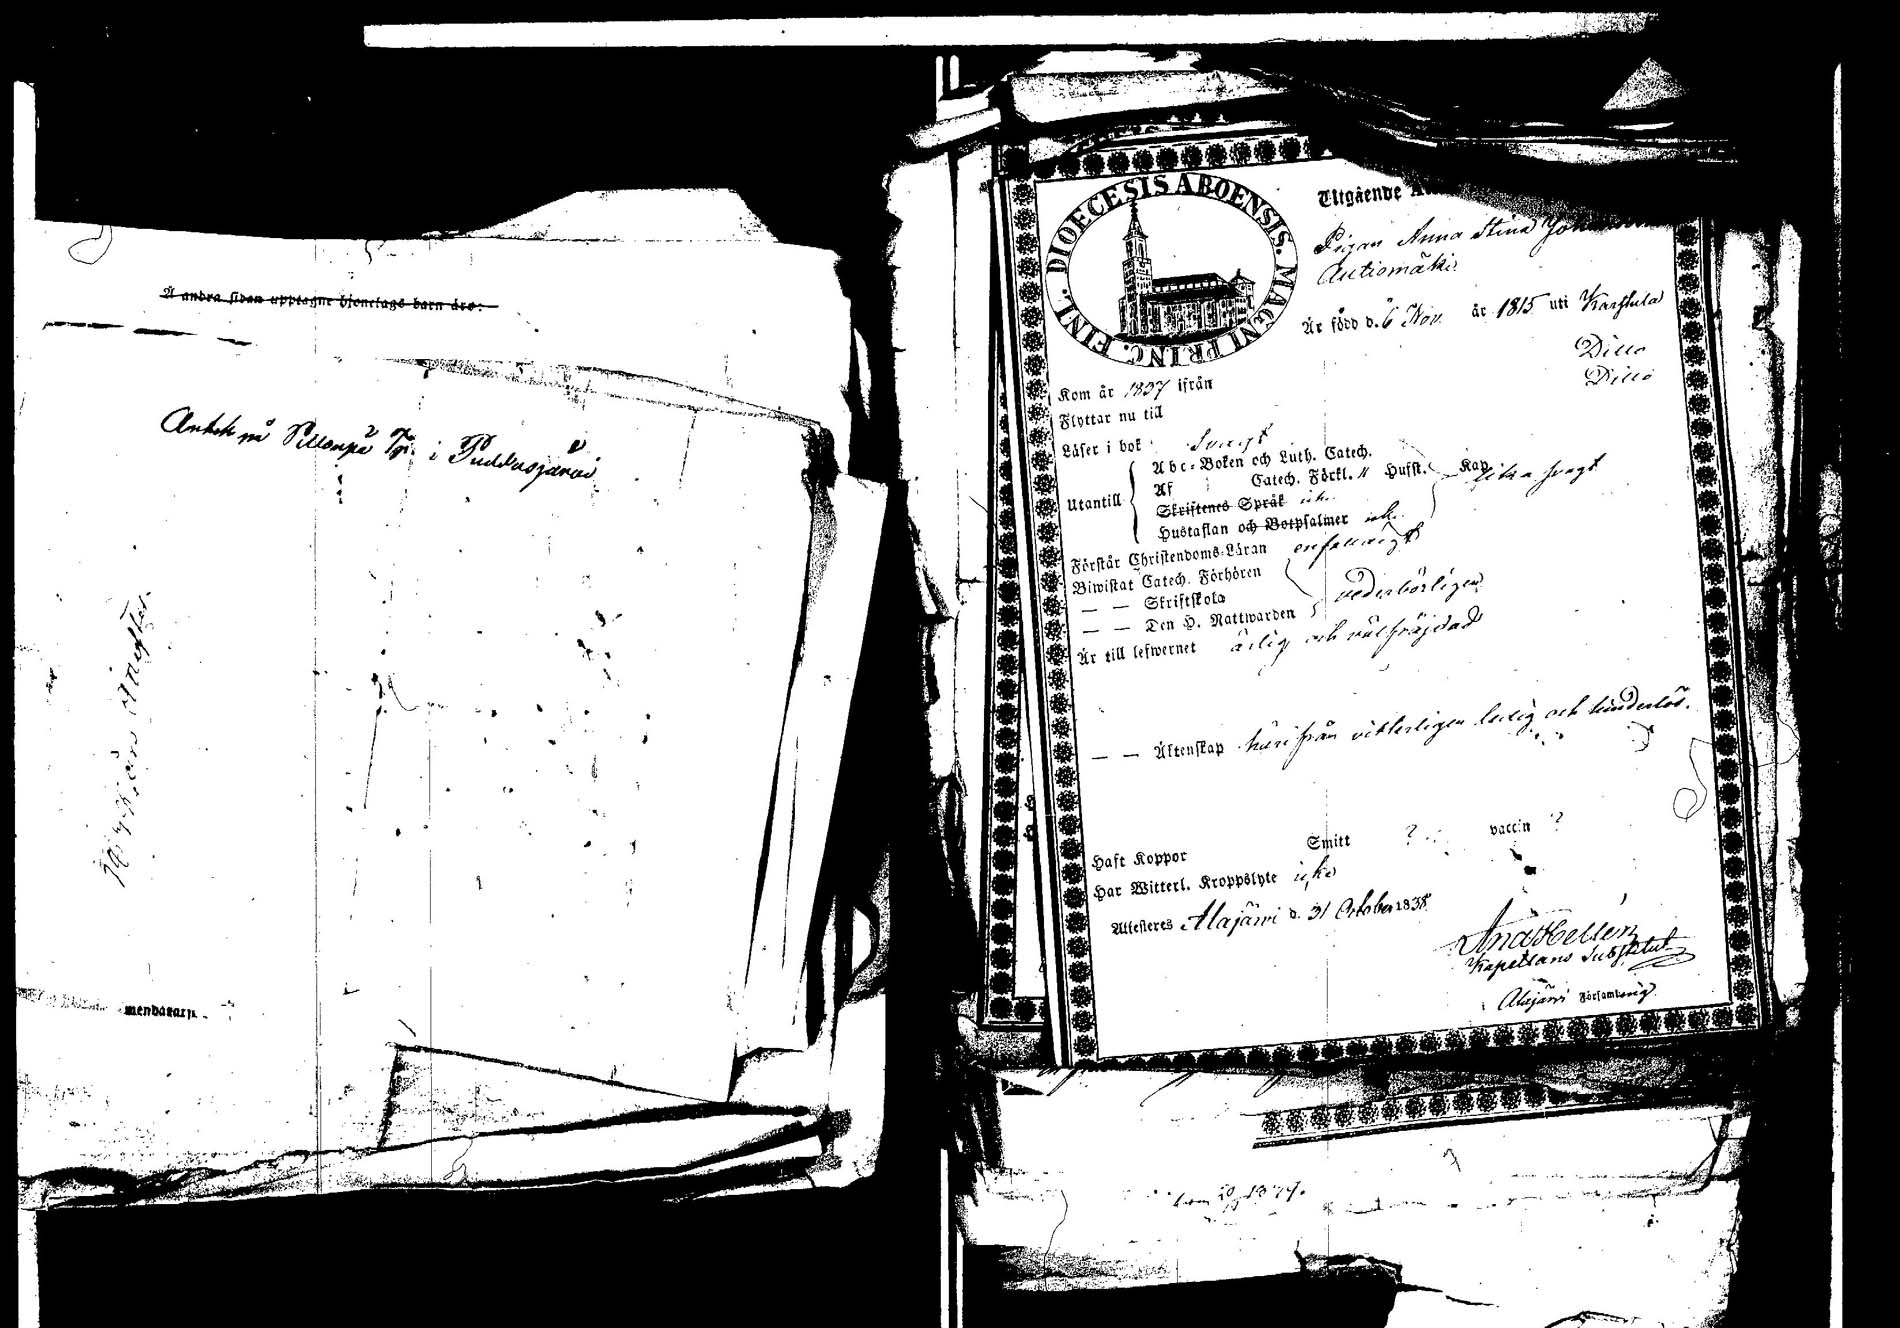 Å andra sidan upptagne hjonelags barn äro:
i Puddasjärvi
DIOECESIS ABOENSIS. MAGNI PRINC. FINL.
Utgående
Pigan Anna Stina
Autiomäki
Är född d. 6 Nov. år 1815 uti Karstula
Ditto
Ditto
Kom år 1837 ifrån
Flyttar nu till
Läser i bok svagt
Abc-Boken och Luth. Catech.
Utantill Af Catech. Förkl. 11 Hufst. Kap.
Skriftenes Språk
Hustaflan och Botpsalmer
Förstår Christendoms-Läran enfalldigt
Biwistat Catech. Förhören
— — Skriftskola vederbörligen
— — Den H. Nattwarden
Är till lefwernet ärlig och välfräjdad
— — Äktenskap härifrån vitterligen ledig och hinderlös.
Haft Koppor Smitt ? vaccin ?
Har Witterl. Kroppslyte icke
Attesteres Alajärvi d. 31 October 1838
And Hellén
Kapellans Substitut
Alajärvi Församling